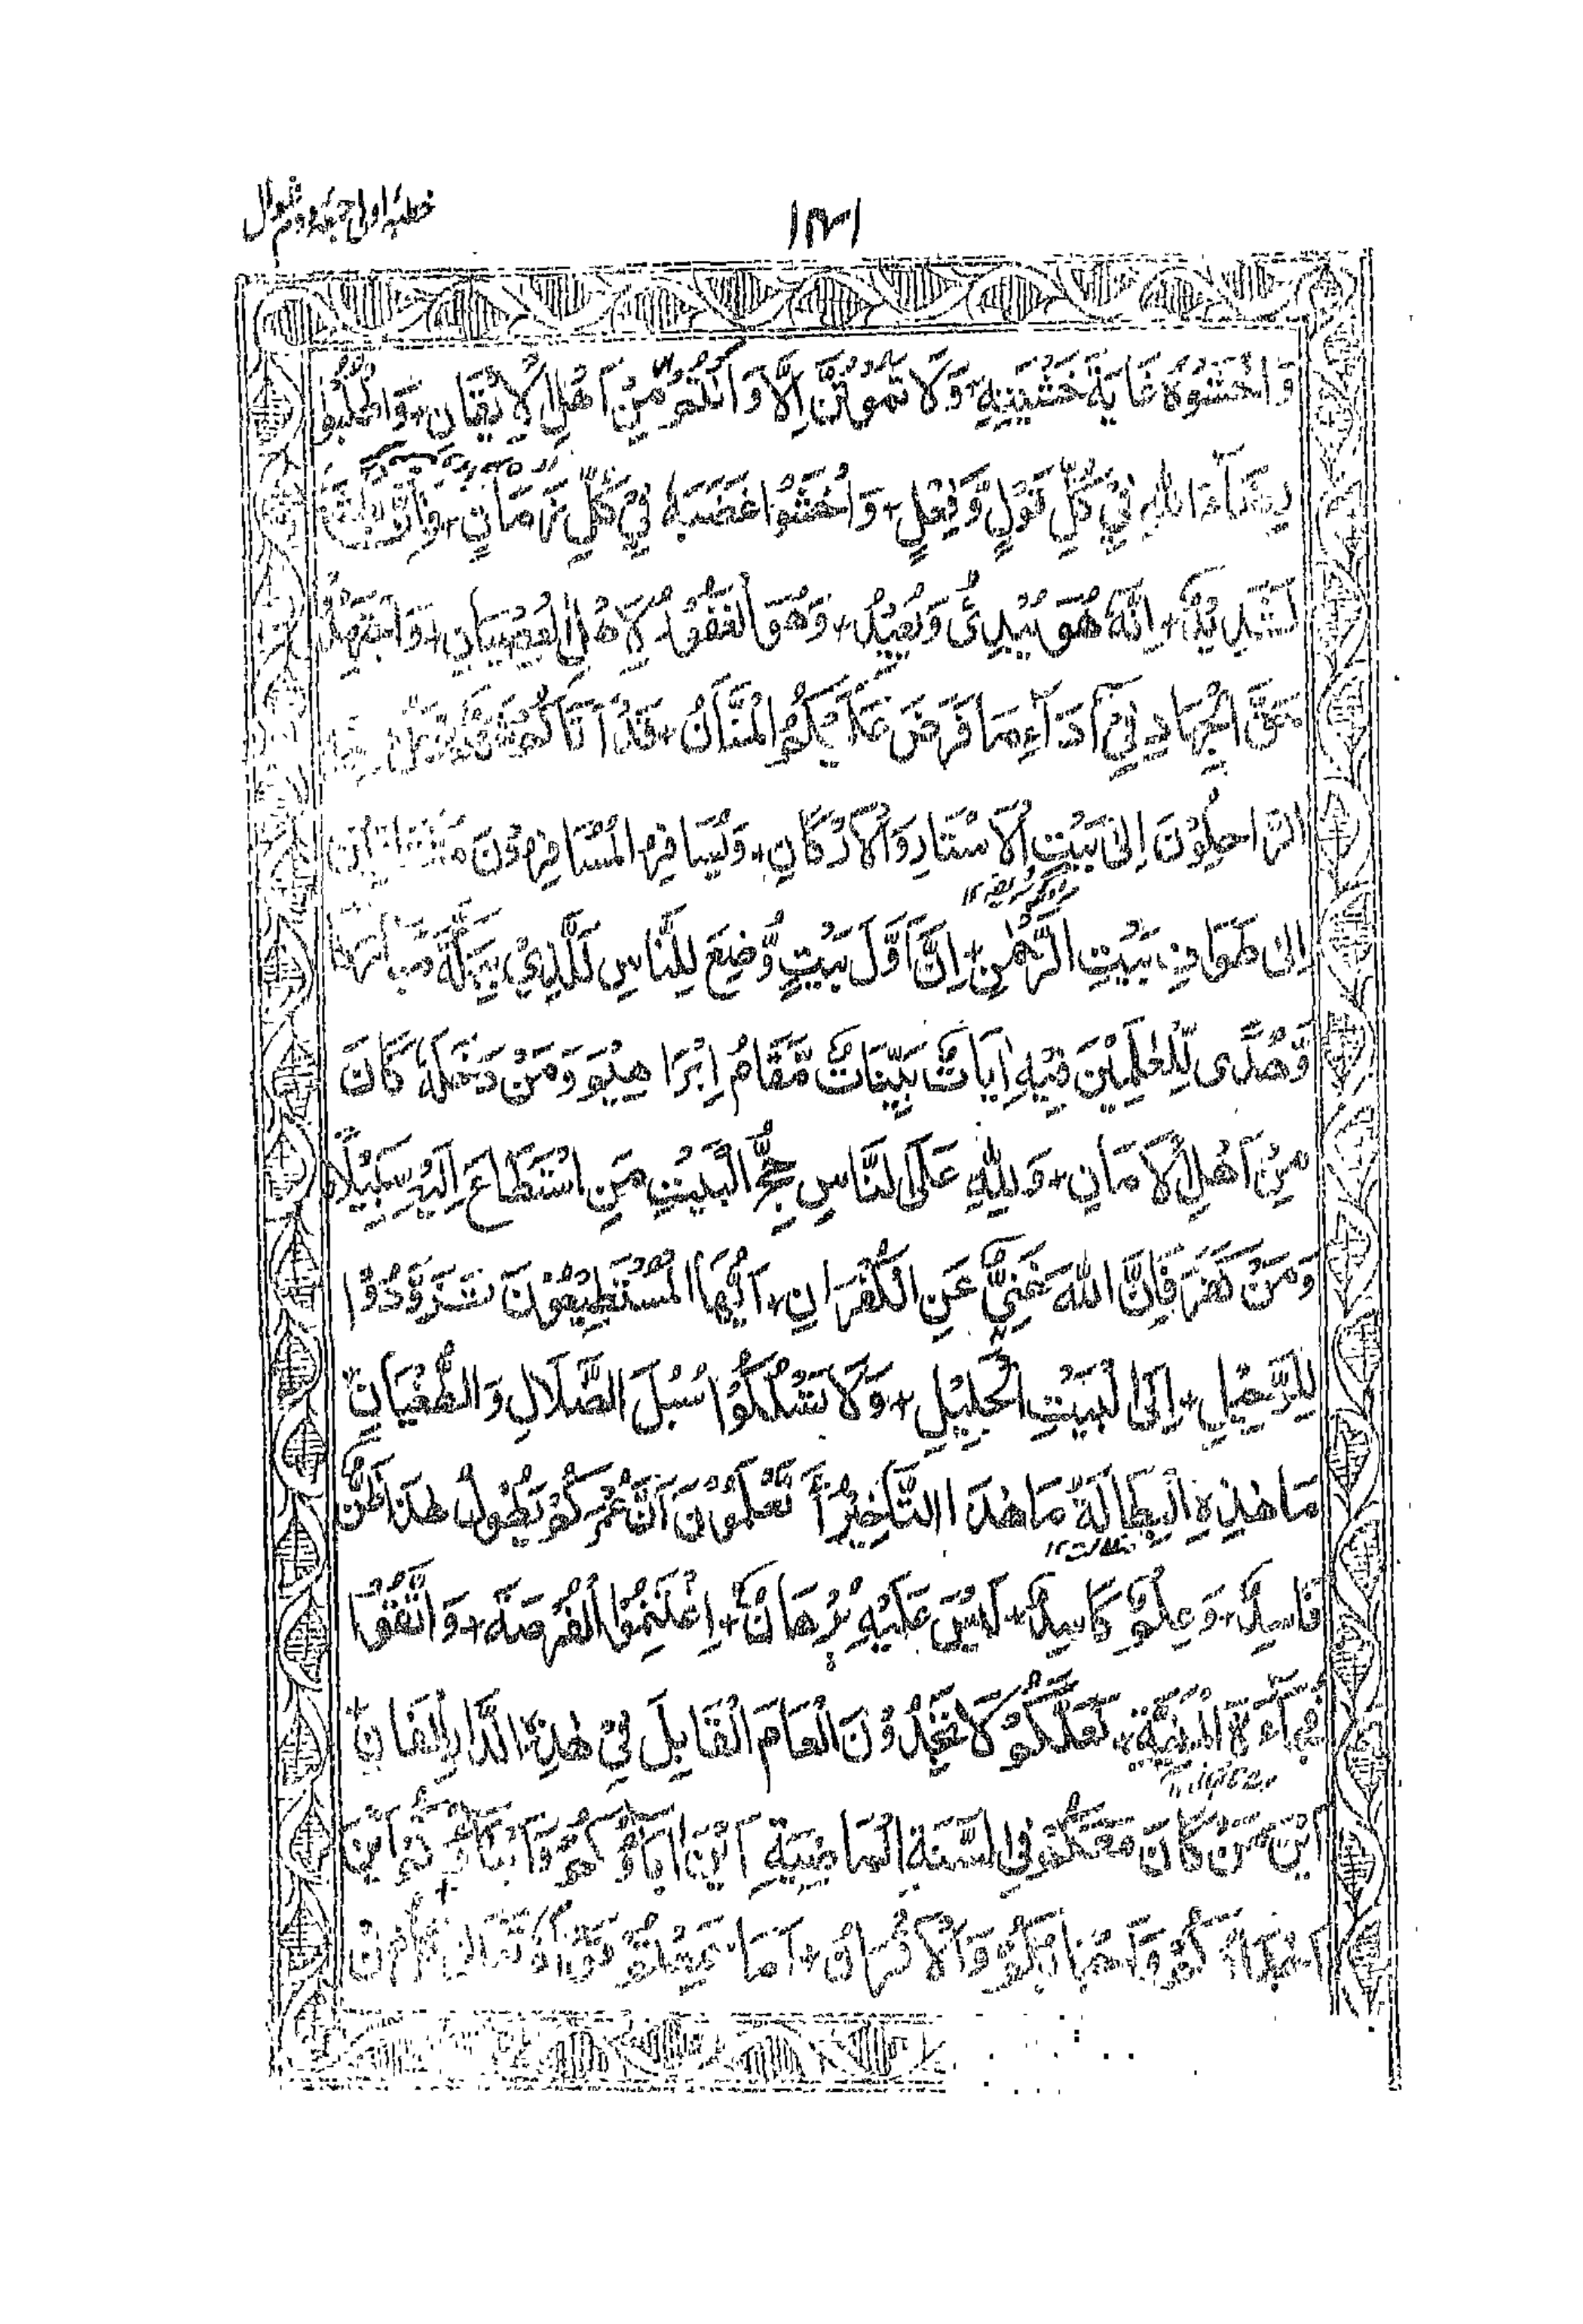 خطبۂ اولی جمعۂ دوم شوال
وَاخْشَوْهُ غَايَةَ خَشْيَتِهٖ+ وَلَا تَمُوْتُنَّ اِلَّا وَاَنْتُمْ مِّنْ اَهْلِ الْاِيْقَانِ+ وَاطْلُبُوْا
رِضَاءَ اللهِ فِيْ كُلِّ قَوْلٍ وَّفِعْلٍ+ وَاخْشَوْا غَضَبَهٗ فِيْ كُلِّ زَمَانٍ+
لَشَدِيْدٌ+ اِنَّهٗ هُوَ يُبْدِئُ وَيُعِيْدُ+ وَهُوَ الْغَفُوْرُ لِاَهْلِ الْعِصْيَانِ+
حَقَّ الْجِهَادِ فِيْ اَدَاءِ مَا فَرَضَ عَلَيْكُمُ الْمَنَّانُ+ قَدْ اَتَاكُمْ
الرَّاحِلُوْنَ اِلٰى بَيْتِ الْاَسْتَارِ وَالْاَرْكَانِ+ وَيُسَافِرُ الْمُسَافِرُوْنَ
اِلٰى طَوَافِ بَيْتِ الرَّحْمٰنِ+ اِنَّ اَوَّلَ بَيْتٍ وُّضِعَ لِلنَّاسِ لَلَّذِيْ بِبَكَّةَ مُبَارَكًا
وَّهُدًى لِّلْعٰلَمِيْنَ فِيْهِ اٰيَاتٌ بَيِّنَاتٌ مَّقَامُ اِبْرَاهِيْمَ وَمَنْ دَخَلَهٗ كَانَ
مِنْ اَهْلِ الْاَمَانِ+ وَلِلّٰهِ عَلَى النَّاسِ حِجُّ الْبَيْتِ مَنِ اسْتَطَاعَ اِلَيْهِ سَبِيْلًا
وَمَنْ كَفَرَ فَاِنَّ اللهَ غَنِيٌّ عَنِ الْكُفْرَانِ+ اَيُّهَا الْمُسْتَطِيْعُوْنَ تَزَوَّدُوْا
لِلرَّحِيْلِ+ اِلَى الْبَيْتِ الْجَلِيْلِ+ وَلَا تَسْلُكُوْا سُبُلَ الضَّلَالِ وَالطُّغْيَانِ+
مَا هٰذِهِ الْبِطَالَةُ مَا هٰذَا التَّاْخِيْرُ أَ تَعْلَمُوْنَ اَنَّ عُمْرَكُمْ يَطُوْلُ هٰذَا ظَنٌّ
فَاسِدٌ+ وَعِلْمٌ كَاسِدٌ+ لَيْسَ عَلَيْهِ بُرْهَانٌ+ اِغْتَنِمُوا الْفُرْصَةَ+ وَاتَّقُوْا
فُجَاءَةَ الْمَنِيَّةِ+ لَعَلَّكُمْ لَا تَجِدُوْنَ الْعَامَ الْقَابِلَ فِيْ هٰذِهِ الدَّارِ الْفَانِ+
اَيْنَ مَنْ كَانَ مَعَكُمْ فِي السَّنَةِ الْمَاضِيَةِ اَيْنَ اٰبَاؤُكُمْ وَاَبْنَاؤُكُمْ اَيْنَ
وَاَحْبَابُكُمْ وَالْاَقْرَانُ+ اَمَا